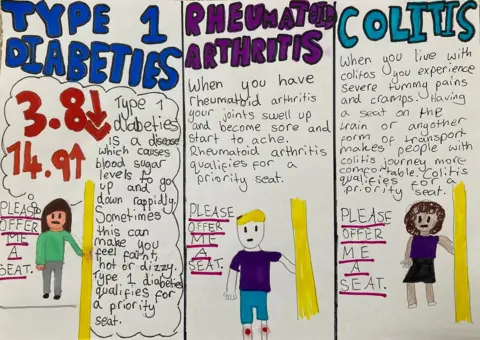 TYPE 1
DIABETIES
3.8↓
14.9↑
Type 1
diabeties
is a disease
which causes
blood sugar
levels to go
up and
down rapidly.
Sometimes
this can
make you
feel faint,
hot or dizzy.
Type 1 diabeties
qualifies for
a priority
seat.
PLEASE
OFFER
ME
A
SEAT.
RHEUMATOID
ARTHRITIS
When you have
rheumatoid arthritis
your joints swell up
and become sore and
start to ache.
Rheumatoid arthritis
qualifies for a
priority seat.
PLEASE
OFFER
ME
A
SEAT.
COLITIS
When you live with
colitas you experience
Severe tummy pains
and cramps. Having
a seat on the
train or anyother
form of transport
makes people with
colitis journey more
comfortable. Colitis
qualifies for a
priority seat.
PLEASE
OFFER
ME
A
SEAT.